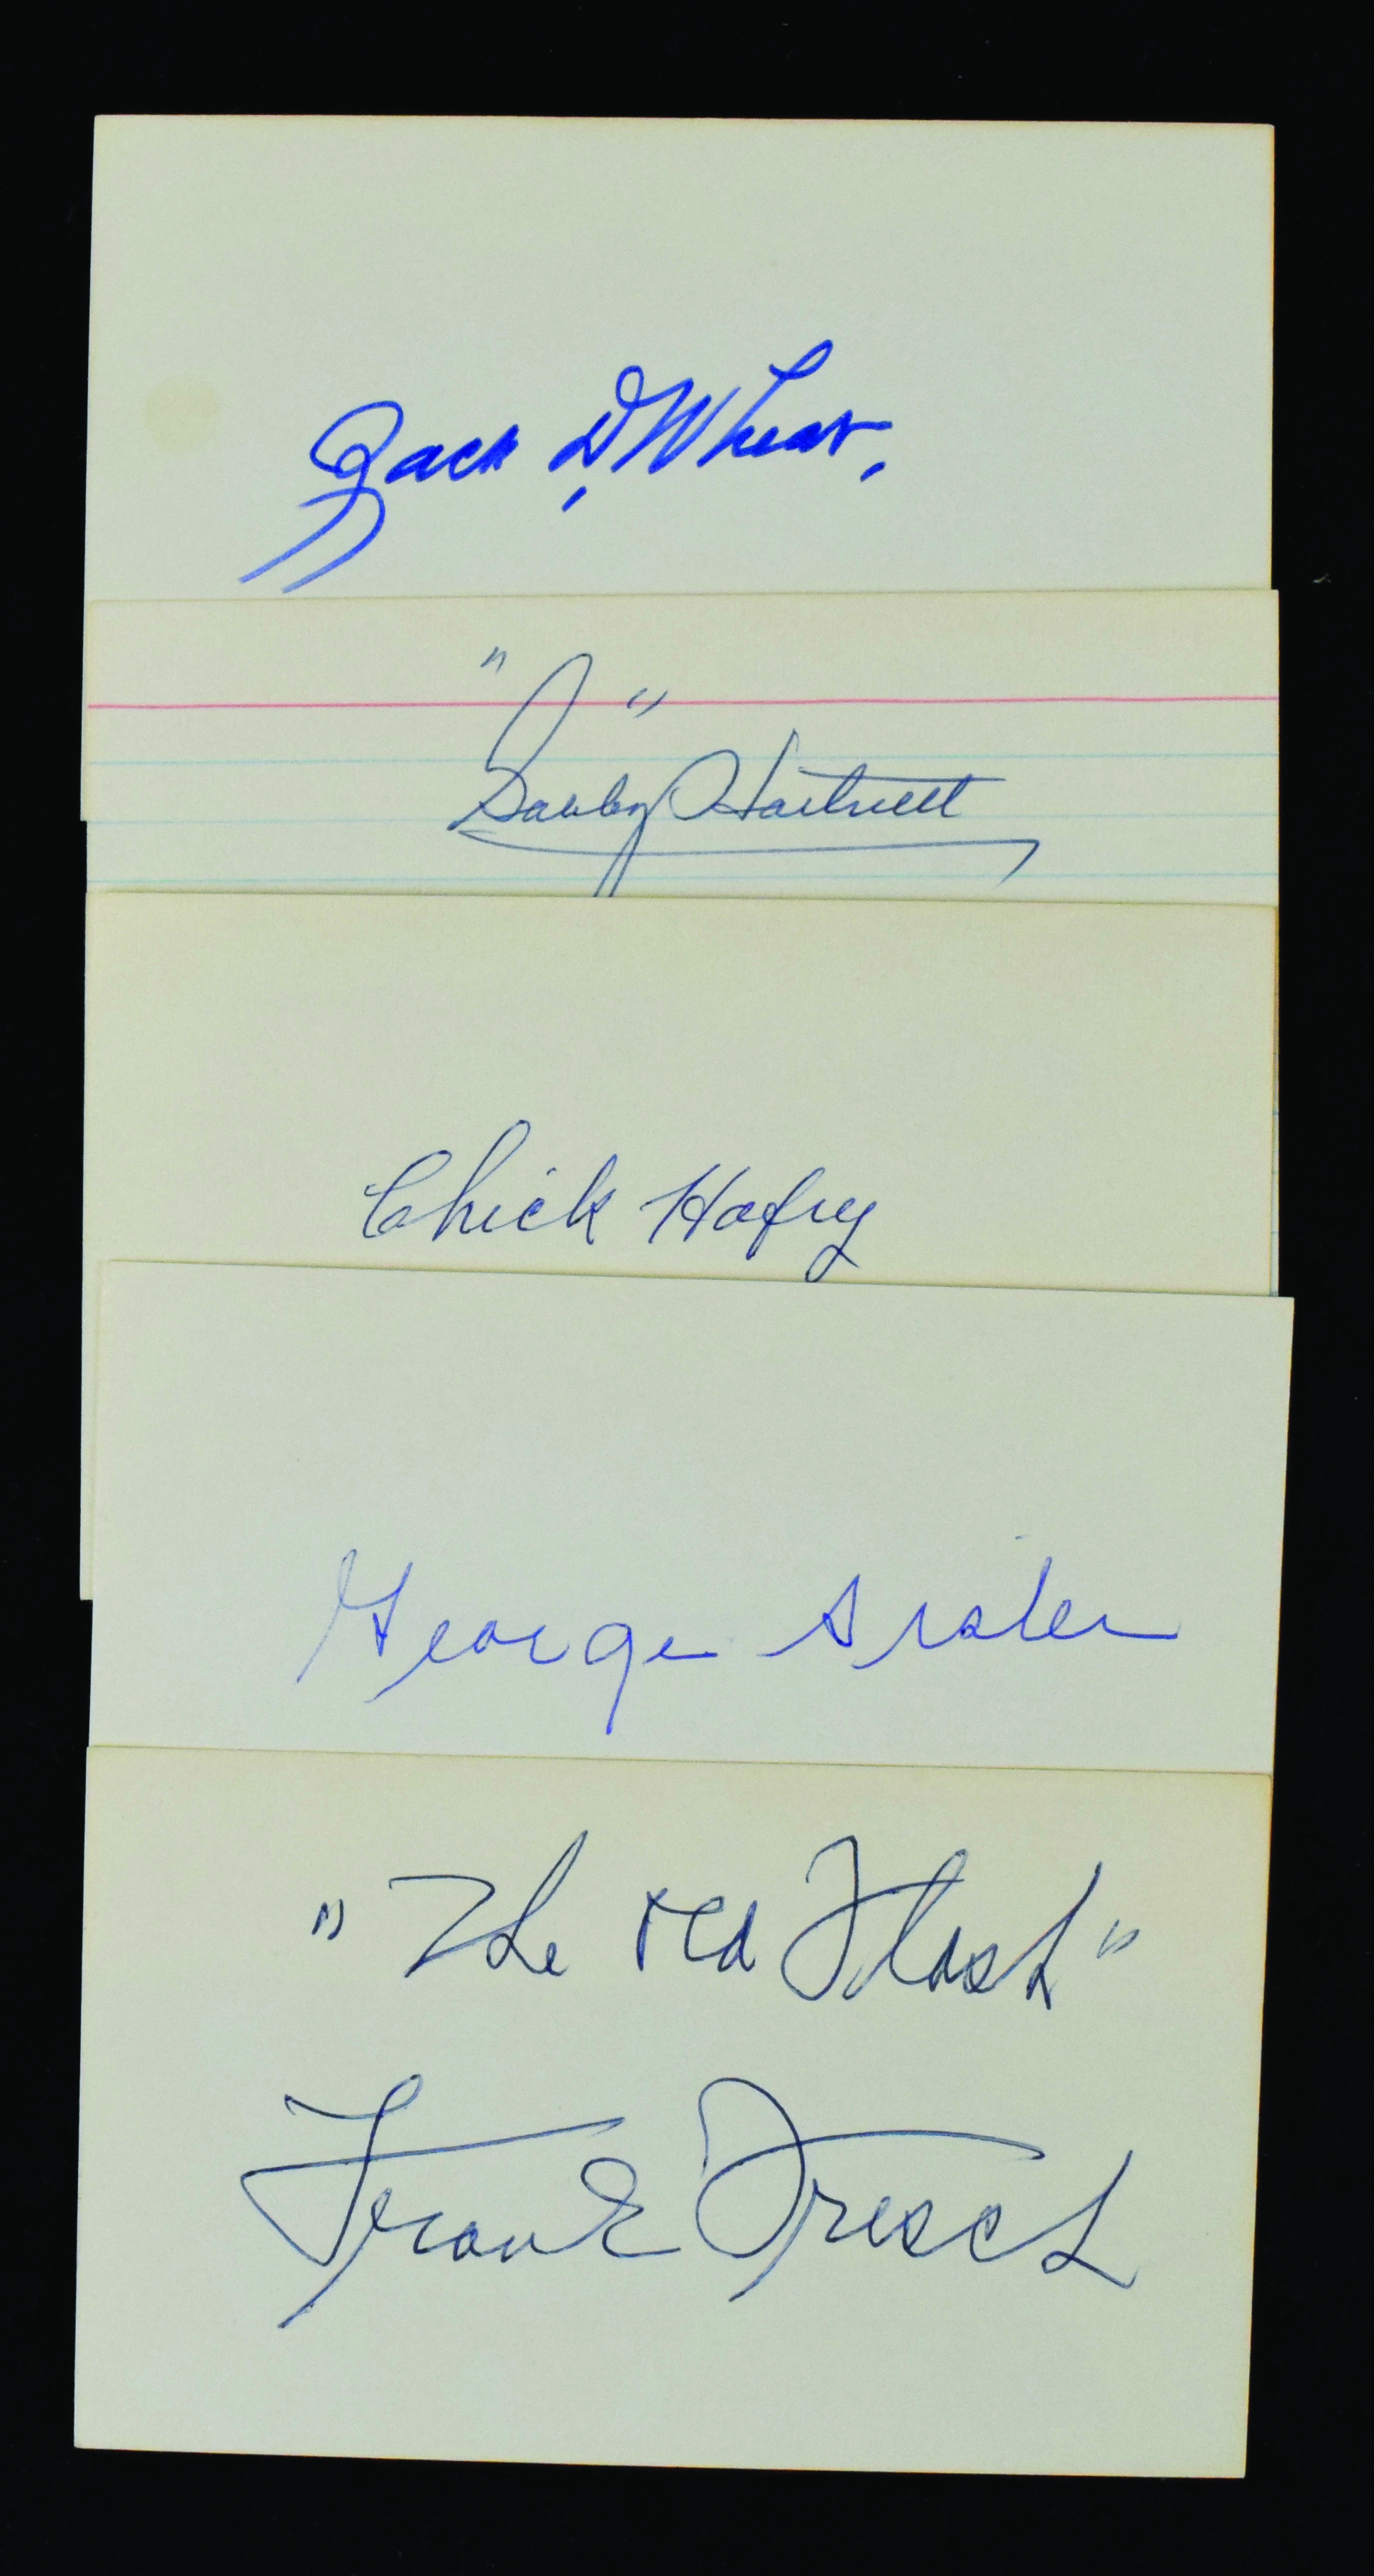 Zack D. Wheat.
"Gabby" Hartnett
Chick Hafey
George Sisler
"The Red Flash"
Frank Frisch